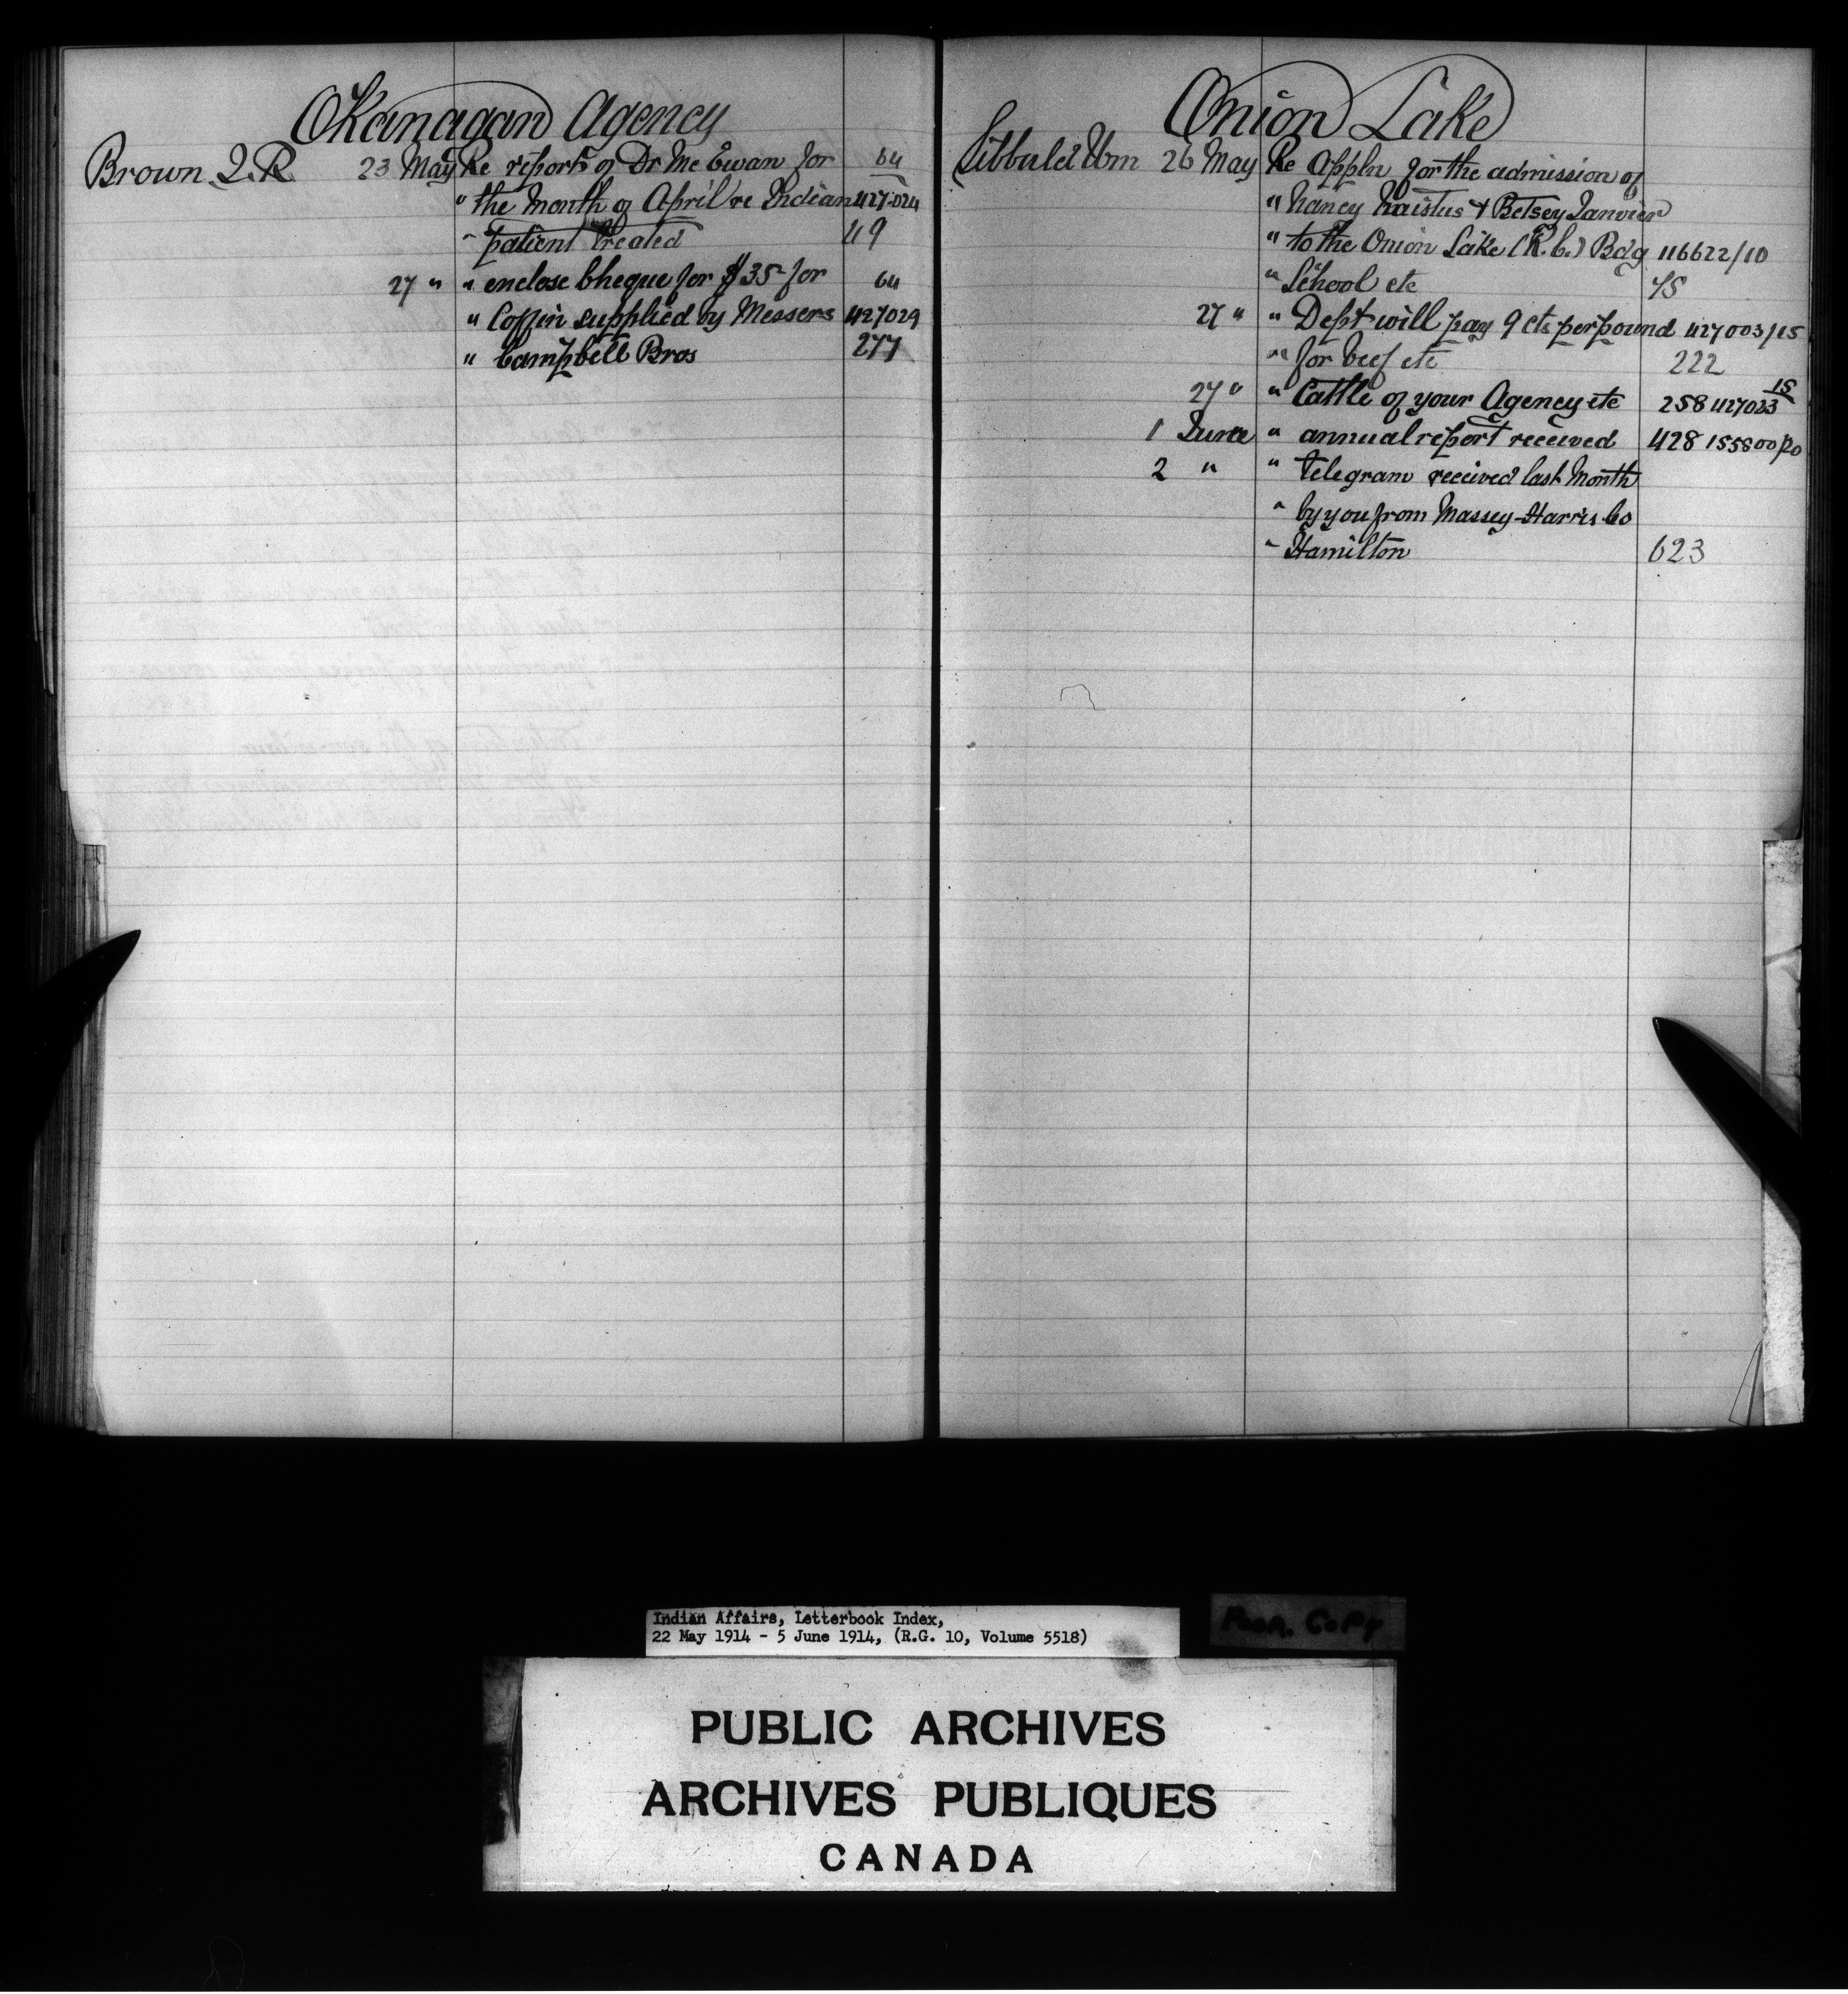 Okanagan Agency
Brown J.R. 23 May Re reports of Dr Mc Ewan for 64
" the month of April re Indian 427-024
" patient treated 49
27 " " enclose Cheque for $35- for 64
" Coffin supplied by Messers 427029
" Campbell Bros 277
Onion Lake
Sibbald Wm 26 May Re Appln for the admission of
" Nancy Naistus & Betsey Janvier
" to the Onion Lake (R.C.) Bdg 116622/10
" School etc 45
27 " " Dept will pay 9 cts per pound 427003/15
" for beef etc 222
27 " " Cattle of your Agency etc 258 427023 15
1 June " annual report received 428 155800 po
2 " " telegram received last Month
" by you from Massey-Harris Co
" Hamilton 623
Indian Affairs, Letterbook Index,
22 May 1914 - 5 June 1914, (R.G. 10, Volume 5518)
POOR COPY
PUBLIC ARCHIVES
ARCHIVES PUBLIQUES
CANADA